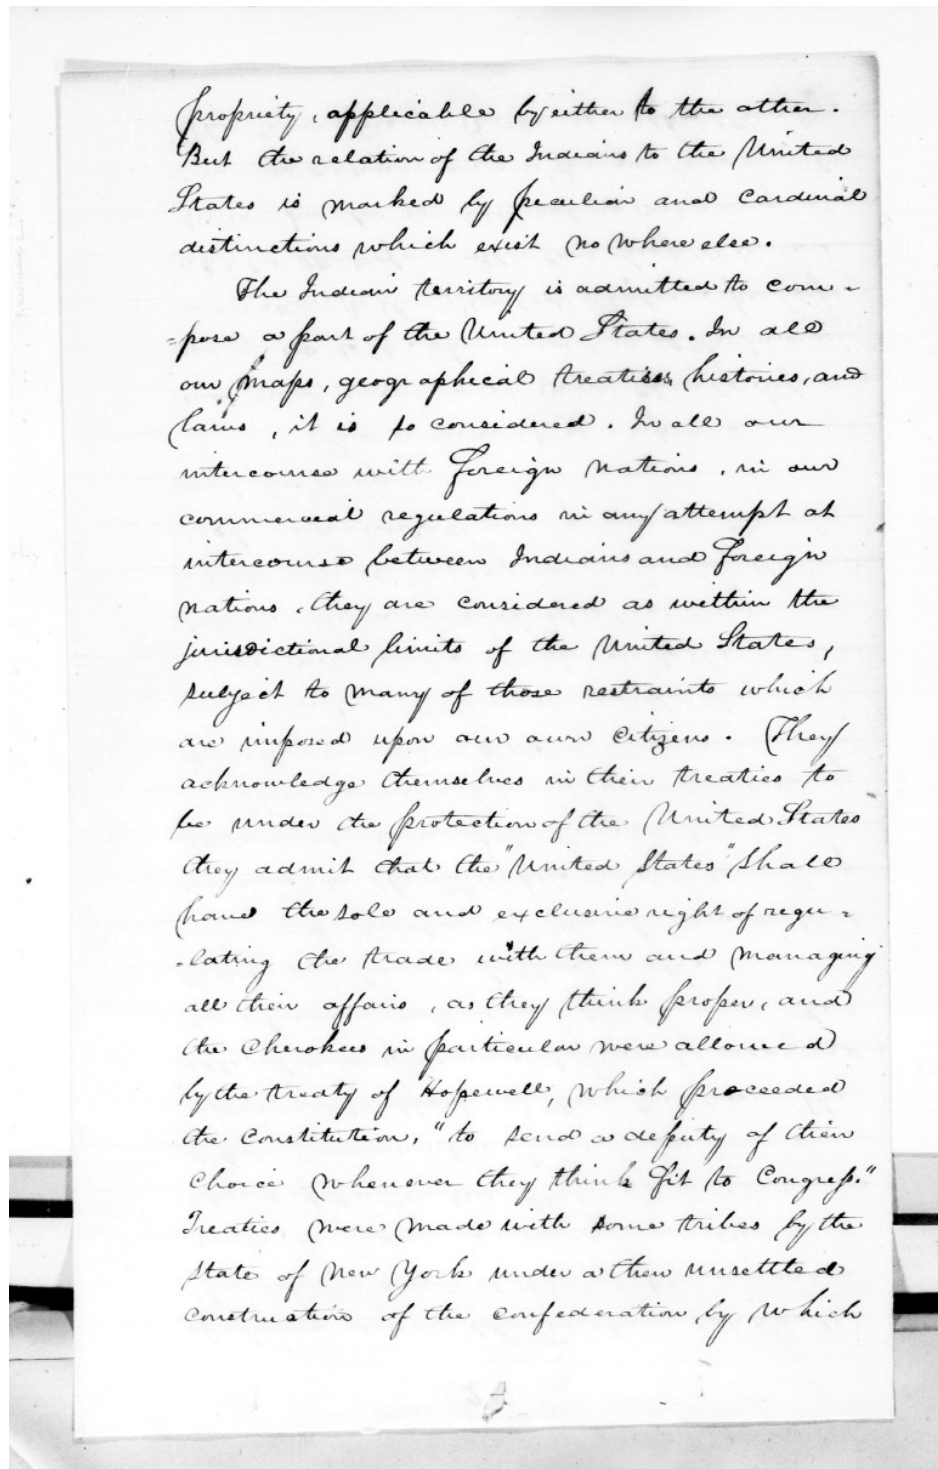 propriety, applicable by either to the other.
But the relation of the Indians to the United
States is marked by peculiar and cardinal
distinctions which exist no where else.
The Indian territory is admitted to com-
-pose a part of the United States. In all
our maps, geographical treatises, histories, and
laws, it is so considered. In all our
intercourse with foreign nations, in our
commercial regulations in any attempt at
intercourse between Indians and foreign
nations, they are considered as within the
jurisdictional limits of the United States,
subject to many of those restraints which
are imposed upon our own citizens. They
acknowledge themselves in their treaties to
be under the protection of the United States
they admit that the "United States" shall
have the sole and exclusive right of regu-
-lating the trade with them and managing
all their affairs, as they think proper, and
the Cherokees in particular were allowed
by the treaty of Hopewell, which proceeded
the Constitution, "to send a deputy of their
choice whenever they think fit to Congress."
Treaties were made with some tribes by the
State of New York under a then unsettled
construction of the confederation by which